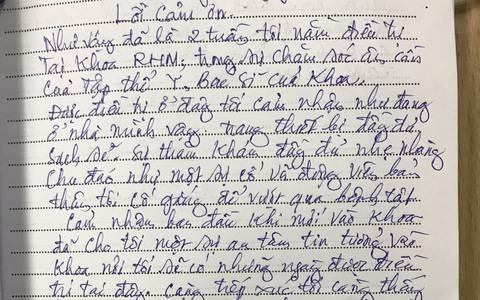 Lời cảm ơn.
Như vậy đã là 2 tuần tôi nằm điều trị
Tại Khoa RHM, trong sự chăm sóc ân cần
của Tập thể Y, Bác sĩ của Khoa.
Được điều trị ở đây tôi cảm nhận như đang
ở nhà mình vậy, trang thiết bị đầy đủ
sạch sẽ. Sự thăm khám đầy đủ nhẹ nhàng
Chu đáo như một sự cổ vũ động viên bản
thân tôi cố gắng để vượt qua bệnh tật.
Cảm nhận ban đầu khi mới vào Khoa
đã cho tôi một sự an tâm tin tưởng vào
Khoa nơi tôi sẽ có những ngày được điều
trị tại đây. Càng tiếp xúc tôi càng thấy